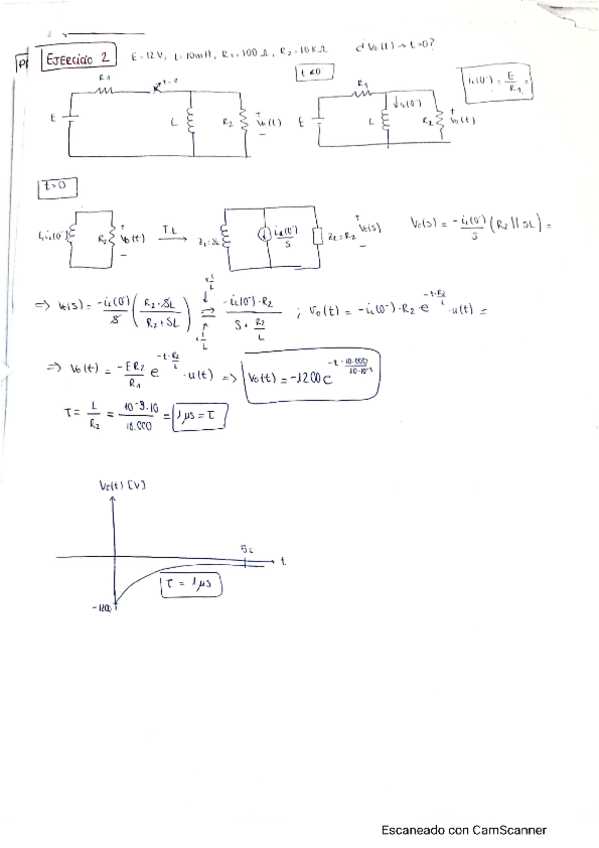 EJERCICIO 2 E=12V, L=10mH, R₁=100Ω, R₂=10KΩ ¿Vo(t) → t>0?
t<0
R₁ t=0 E L R₂ + Vo(t) -
R₁ E L iL(0⁻) R₂ + Vo(t) -
iL(0⁻) = E/R₁ =
t>0
L, iL(0⁻) R₂ + Vo(t) - TL → ZL=SL iL(0⁻)/S Z₂=R₂ + Vo(s) - Vo(s) = -iL(0⁻)/S (R₂ || SL) =
⇒ Vo(s) = -iL(0⁻)/S (R₂·SL / R₂+SL) = -iL(0⁻)·R₂ / S + R₂/L ; Vo(t) = -iL(0⁻)·R₂ e^(-t·R₂/L) · u(t) =
⇒ Vo(t) = -ER₂/R₁ e^(-t·R₂/L) · u(t) ⇒ Vo(t) = -1200 e^(-t·10.000/10·10⁻³)
τ = L/R₂ = 10⁻³·10/10.000 = 1μs = τ
Vo(t) [V]
5τ
t
τ = 1μs
-1200
Escaneado con CamScanner